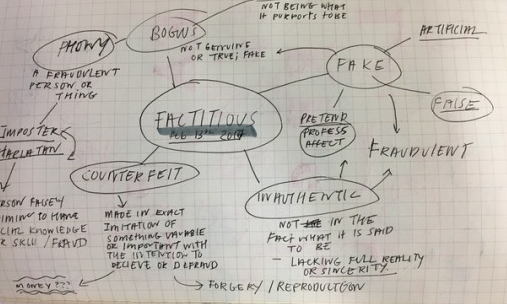 NOT BEING WHAT
IT PURPORTS TO BE
BOGUS
PHONY
NOT GENUINE
OR TRUE; FAKE
ARTIFICIAL
FAKE
A FRAUDULENT
PERSON OR
THING
FALSE
FACTITIOUS
FEB 13TH 2017
PRETEND
PROFESS
AFFECT
FRAUDULENT
IMPOSTER
HARLATAN
COUNTERFEIT
INAUTHENTIC
RSON FALSEY
IMING TO HAVE
CIAL KNOWLEDGE
R SKILL / FRAUD
MADE IN EXACT
IMITATION OF
SOMETHING VALUABLE
OR IMPORTANT WITH
THE INTENTION TO
DECIEVE OR DEFRAUD
NOT IN THE
FACT WHAT IT IS SAID
TO BE
- LACKING FULL REALITY
OR SINCERITY.
MONEY ???
FORGERY / REPRODUCTION